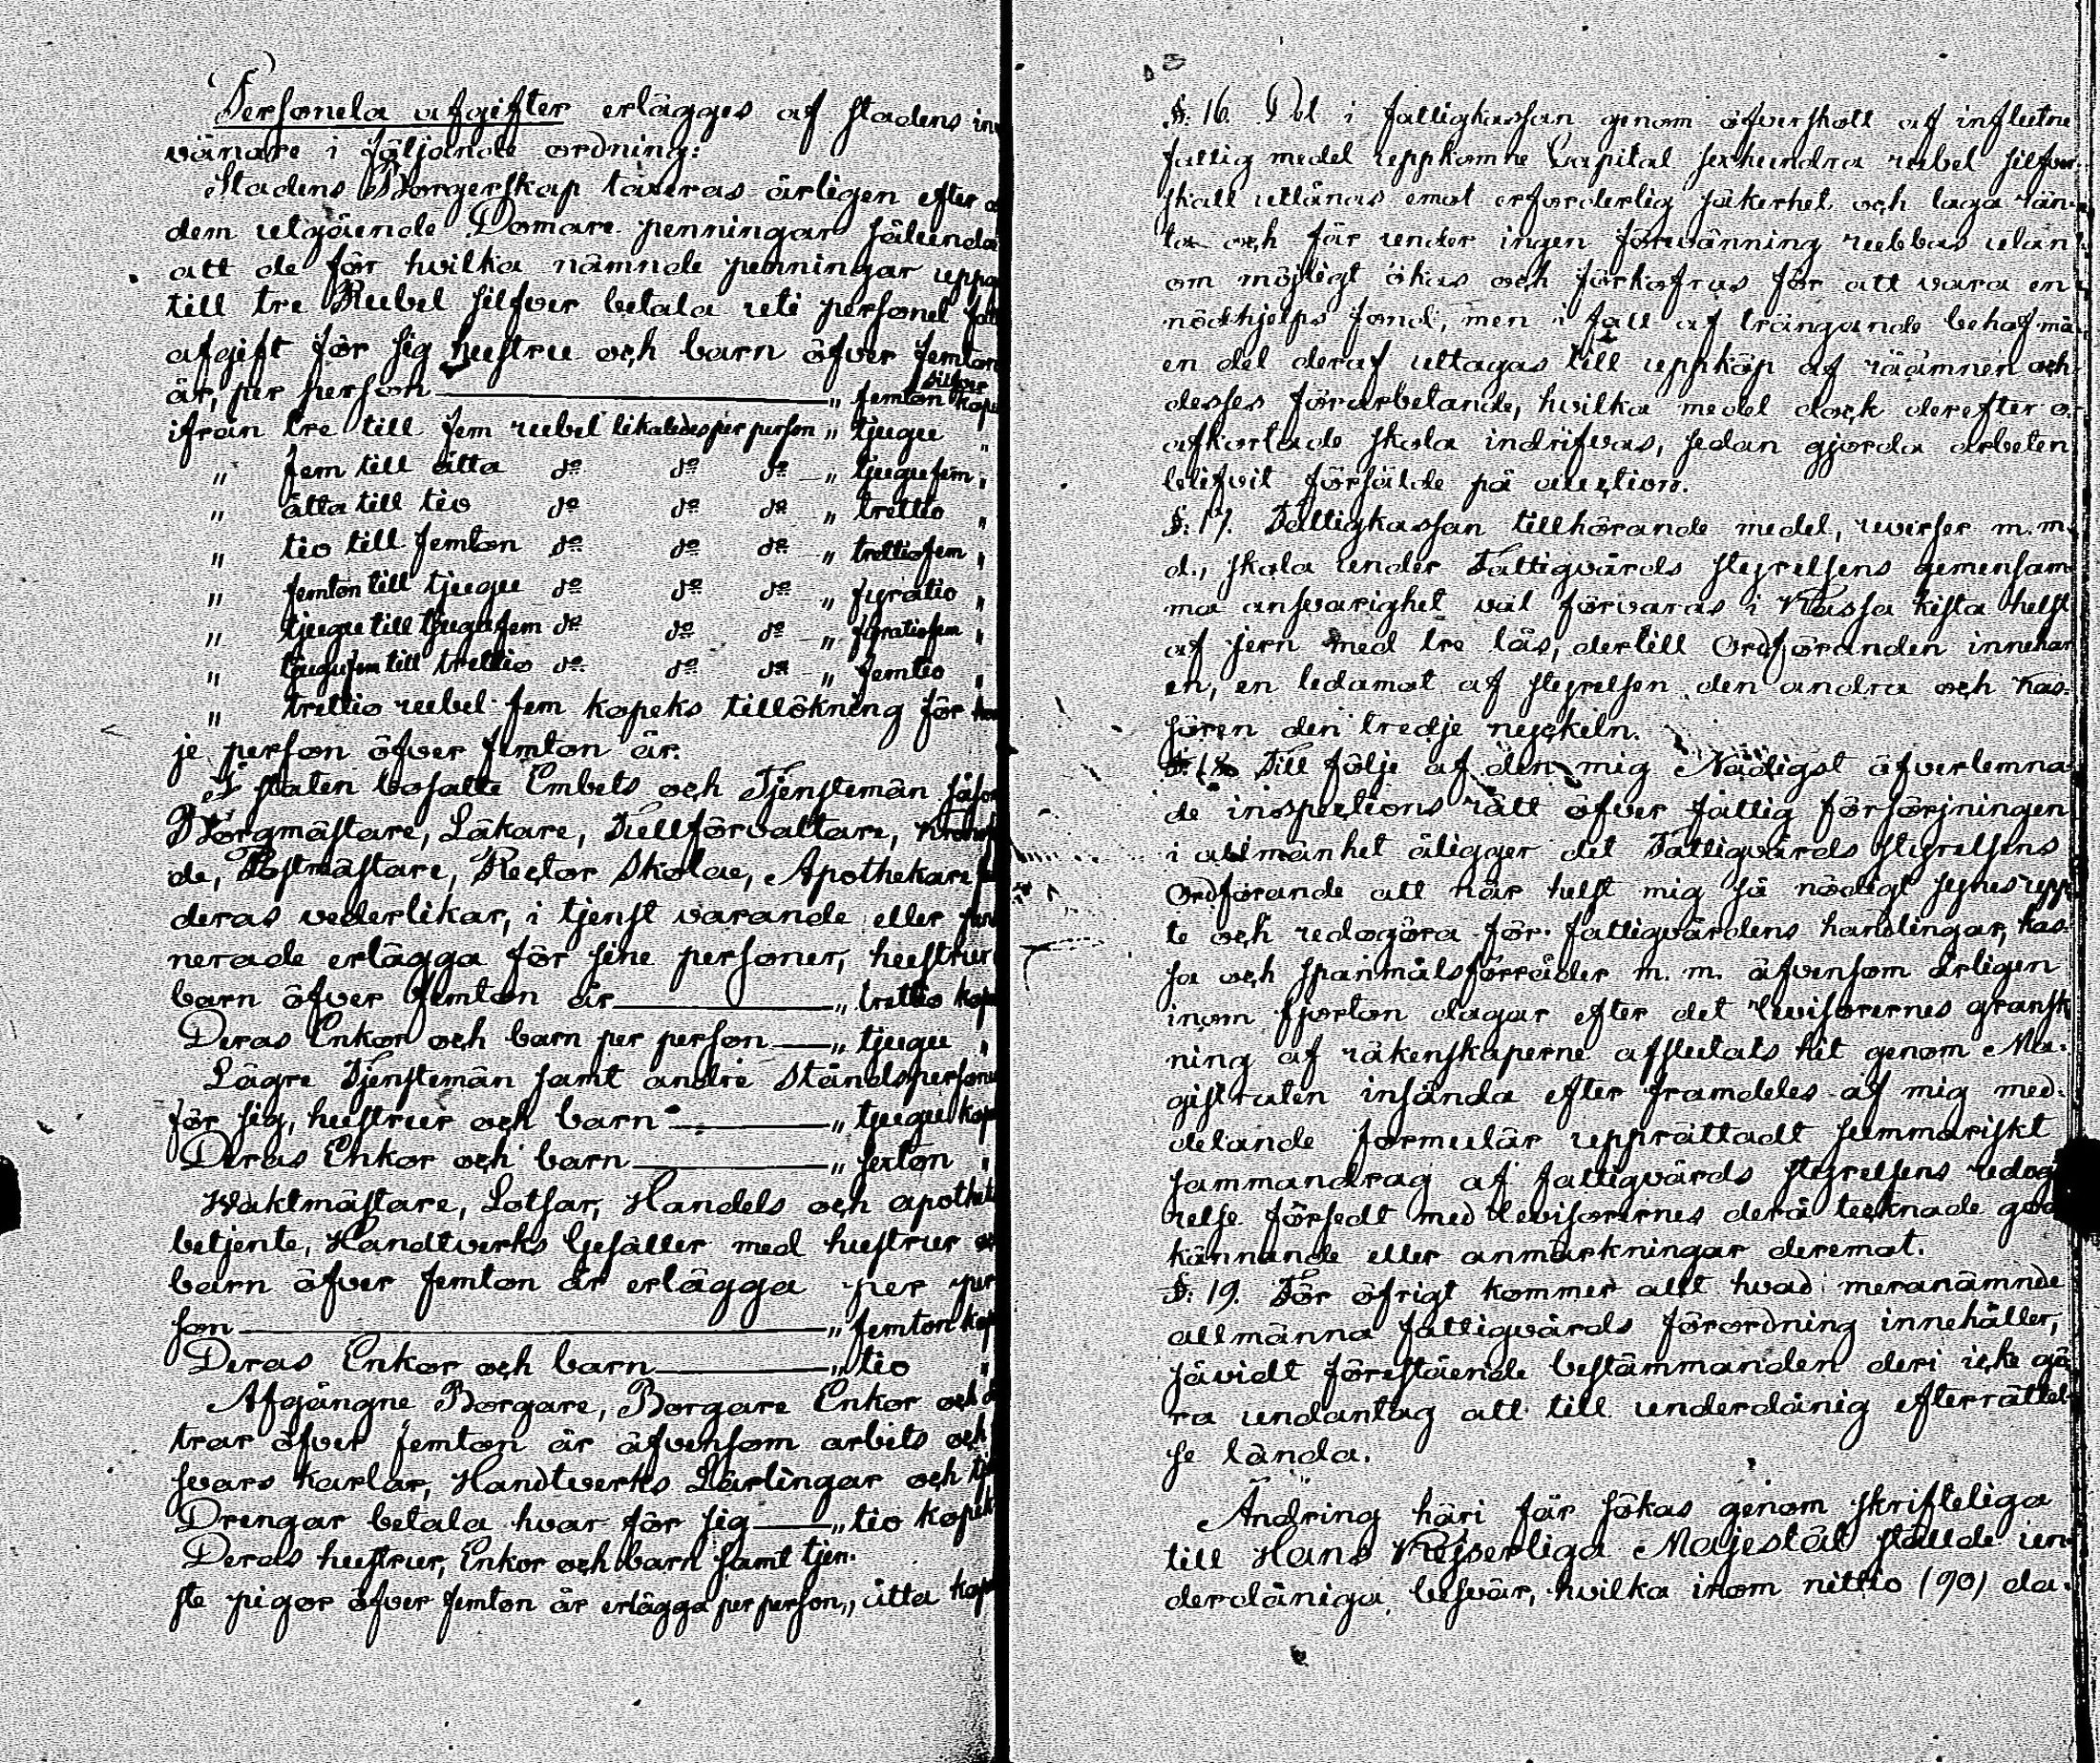 Personela afgifter erlägges af stadens in
vånare i följande ordning:
Stadens Borgerskap taxeras årligen efter a
dem utgående Domare penningar sålunda
att de för hvilka nämnde penningar uppgå
till tre Rubel silfver betala uti personel fatt
afgift för sig hustru och barn öfver femton
år, per person „ femton silfver kope
ifrån tre till fem rubel likaledes per person „ tjugu „
„ fem till åtta do do do „ tjugufem „
„ åtta till tio do do do „ trettio „
„ tio till femton do do do „ trettiofem „
„ femton till tjugu do do do „ fyratio „
„ tjugu till tjugufem do do do „ fyratiofem „
„ tjugufem till trettio do do do „ femtio „
„ trettio rubel fem kopeks tillökning för
je person öfver femton år.
I staten bosatte Embets och Tjenstemän såsom
Borgmästare, Läkare, Tullförvaltare,
de, Postmästare, Rector Skolae, Apothekare
deras vederlikar, i tjenst varande eller
nerade erlägga för sine personer, hustrur
barn öfver femton år „ trettio kope
Deras Enkor och barn per person „ tjugu „
Lägre Tjenstemän samt andre Ståndspersoner
för sig, hustrur och barn „ tjugu kop
Deras Enkor och barn „ sexton „
Waktmästare, Lotsar, Handels och apothek
betjente, Handtverks Gesäller med hustrur
barn öfver femton år erlägga per per
son „ femton kop
Deras Enkor och barn „ tio „
Afgångne Borgare, Borgare Enkor och
trar öfver femton år äfvensom arbets och
svars karlar, Handtverks Lärlingar och tj
Drengar betala hvar för sig „ tio kopek
Deras hustrur, Enkor och barn samt tjen-
ste pigor öfver femton år erlägga per person „ åtta kop
§. 16. Det i fattigkassan genom öfverskott af influtne
fattig medel uppkomne Capital sexhundra rubel silfver
skall utlånas emot erforderlig säkerhet och laga rän-
ta och får under ingen förevänning rubbas utan
om möjligt ökas och förkofras för att vara en
nödhjelps fond, men i fall af trängande behof må
en del deraf uttagas till uppköp af råämnen och
desses förarbetande, hvilka medel dock derefter o-
afkortade skola indrifvas, sedan gjorda arbeten
blifvit försålde på auction.
§. 17. Fattigkassan tillhörande medel, reverser m.m.
d., skola under Fattigvårds styrelsens gemensam-
ma ansvarighet väl förvaras i Kassa kista helst
af jern med tre lås, dertill Ordföranden innehar
en, en ledamot af styrelsen den andra och Kas-
sören den tredje nyckeln.
§. 18. Till följe af den mig Nådigst öfverlemna-
de inspections rätt öfver fattig försörjningen
i allmänhet åligger det Fattigvårds styrelsens
Ordförande att när helst mig så nödigt synes upp-
te och redogöra för fattigvårdens handlingar, kas-
sa och spanmålsförråder m.m. äfvensom årligen
inom fjorton dagar efter det Revisorernes gransk
ning af räkenskaperne afslutats hit genom Ma-
gistraten insända efter framdeles af mig med-
delande formulär upprättadt summariskt
sammandrag af fattigvårds styrelsens redogö
relse försedt med Revisorernes derå tecknade god
kännande eller anmärkningar deremot.
§. 19. För öfrigt kommer allt hvad meranämnde
allmänna fattigvårds förordning innehåller,
såvidt förestående bestämmanden deri icke gö
ra undantag att till underdånig efterrättel-
se lända.
Ändring häri får sökas genom skrifteliga
till Hans Kejserliga Majestät ställde un-
derdåniga besvär, hvilka inom nittio (90) da-